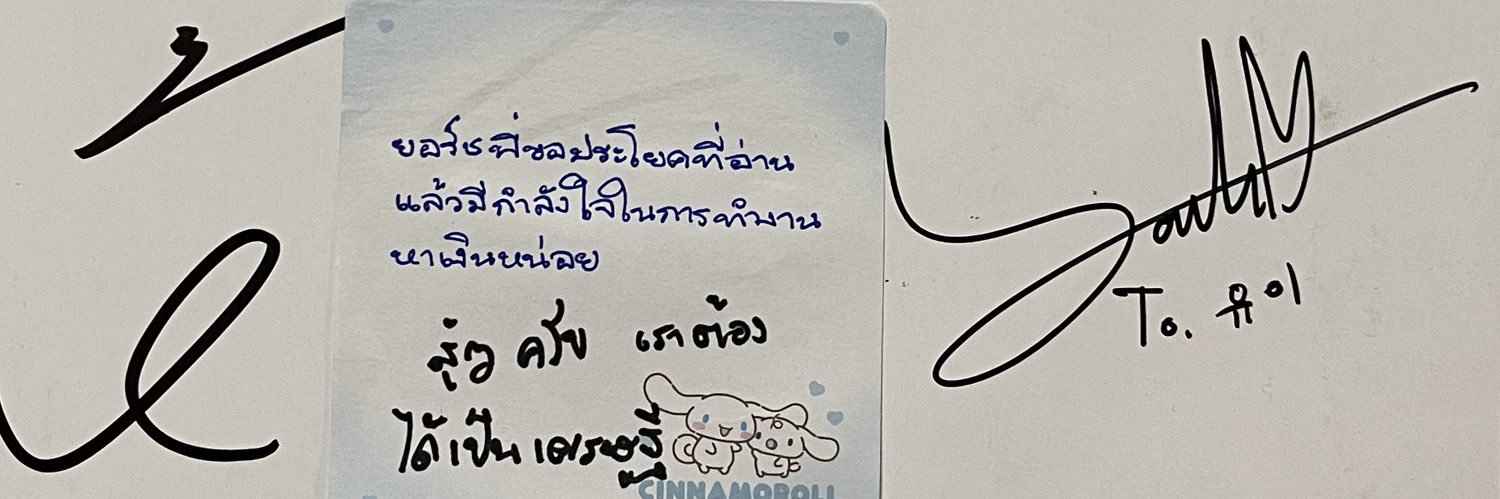 ขอรีชพี่ขอประโยคที่อ่าน
แล้วมีกำลังใจในการทำงาน
หาเงินหน่อย
สู้ๆ ครับ เราต้อง
ได้เป็นเศรษฐี
CINNAMOROLL
To. 유이